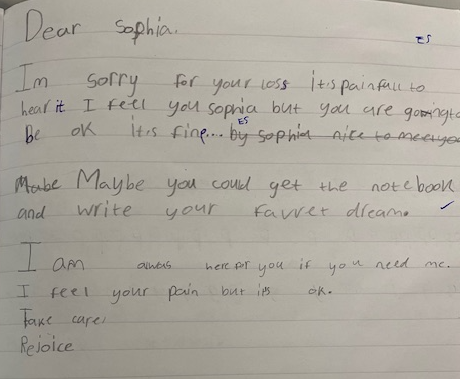 Dear Sophia.
ES
Im sorry for your loss it,s painfull to
hear it I feel you sophia but you are going to
Be ok it,s fine... ES by sophia nice to meet you
Mabe Maybe you could get the notebook
and write your favret dream.
I am always here for you if you need me.
I feel your pain but it,s ok.
Take care,
Rejoice